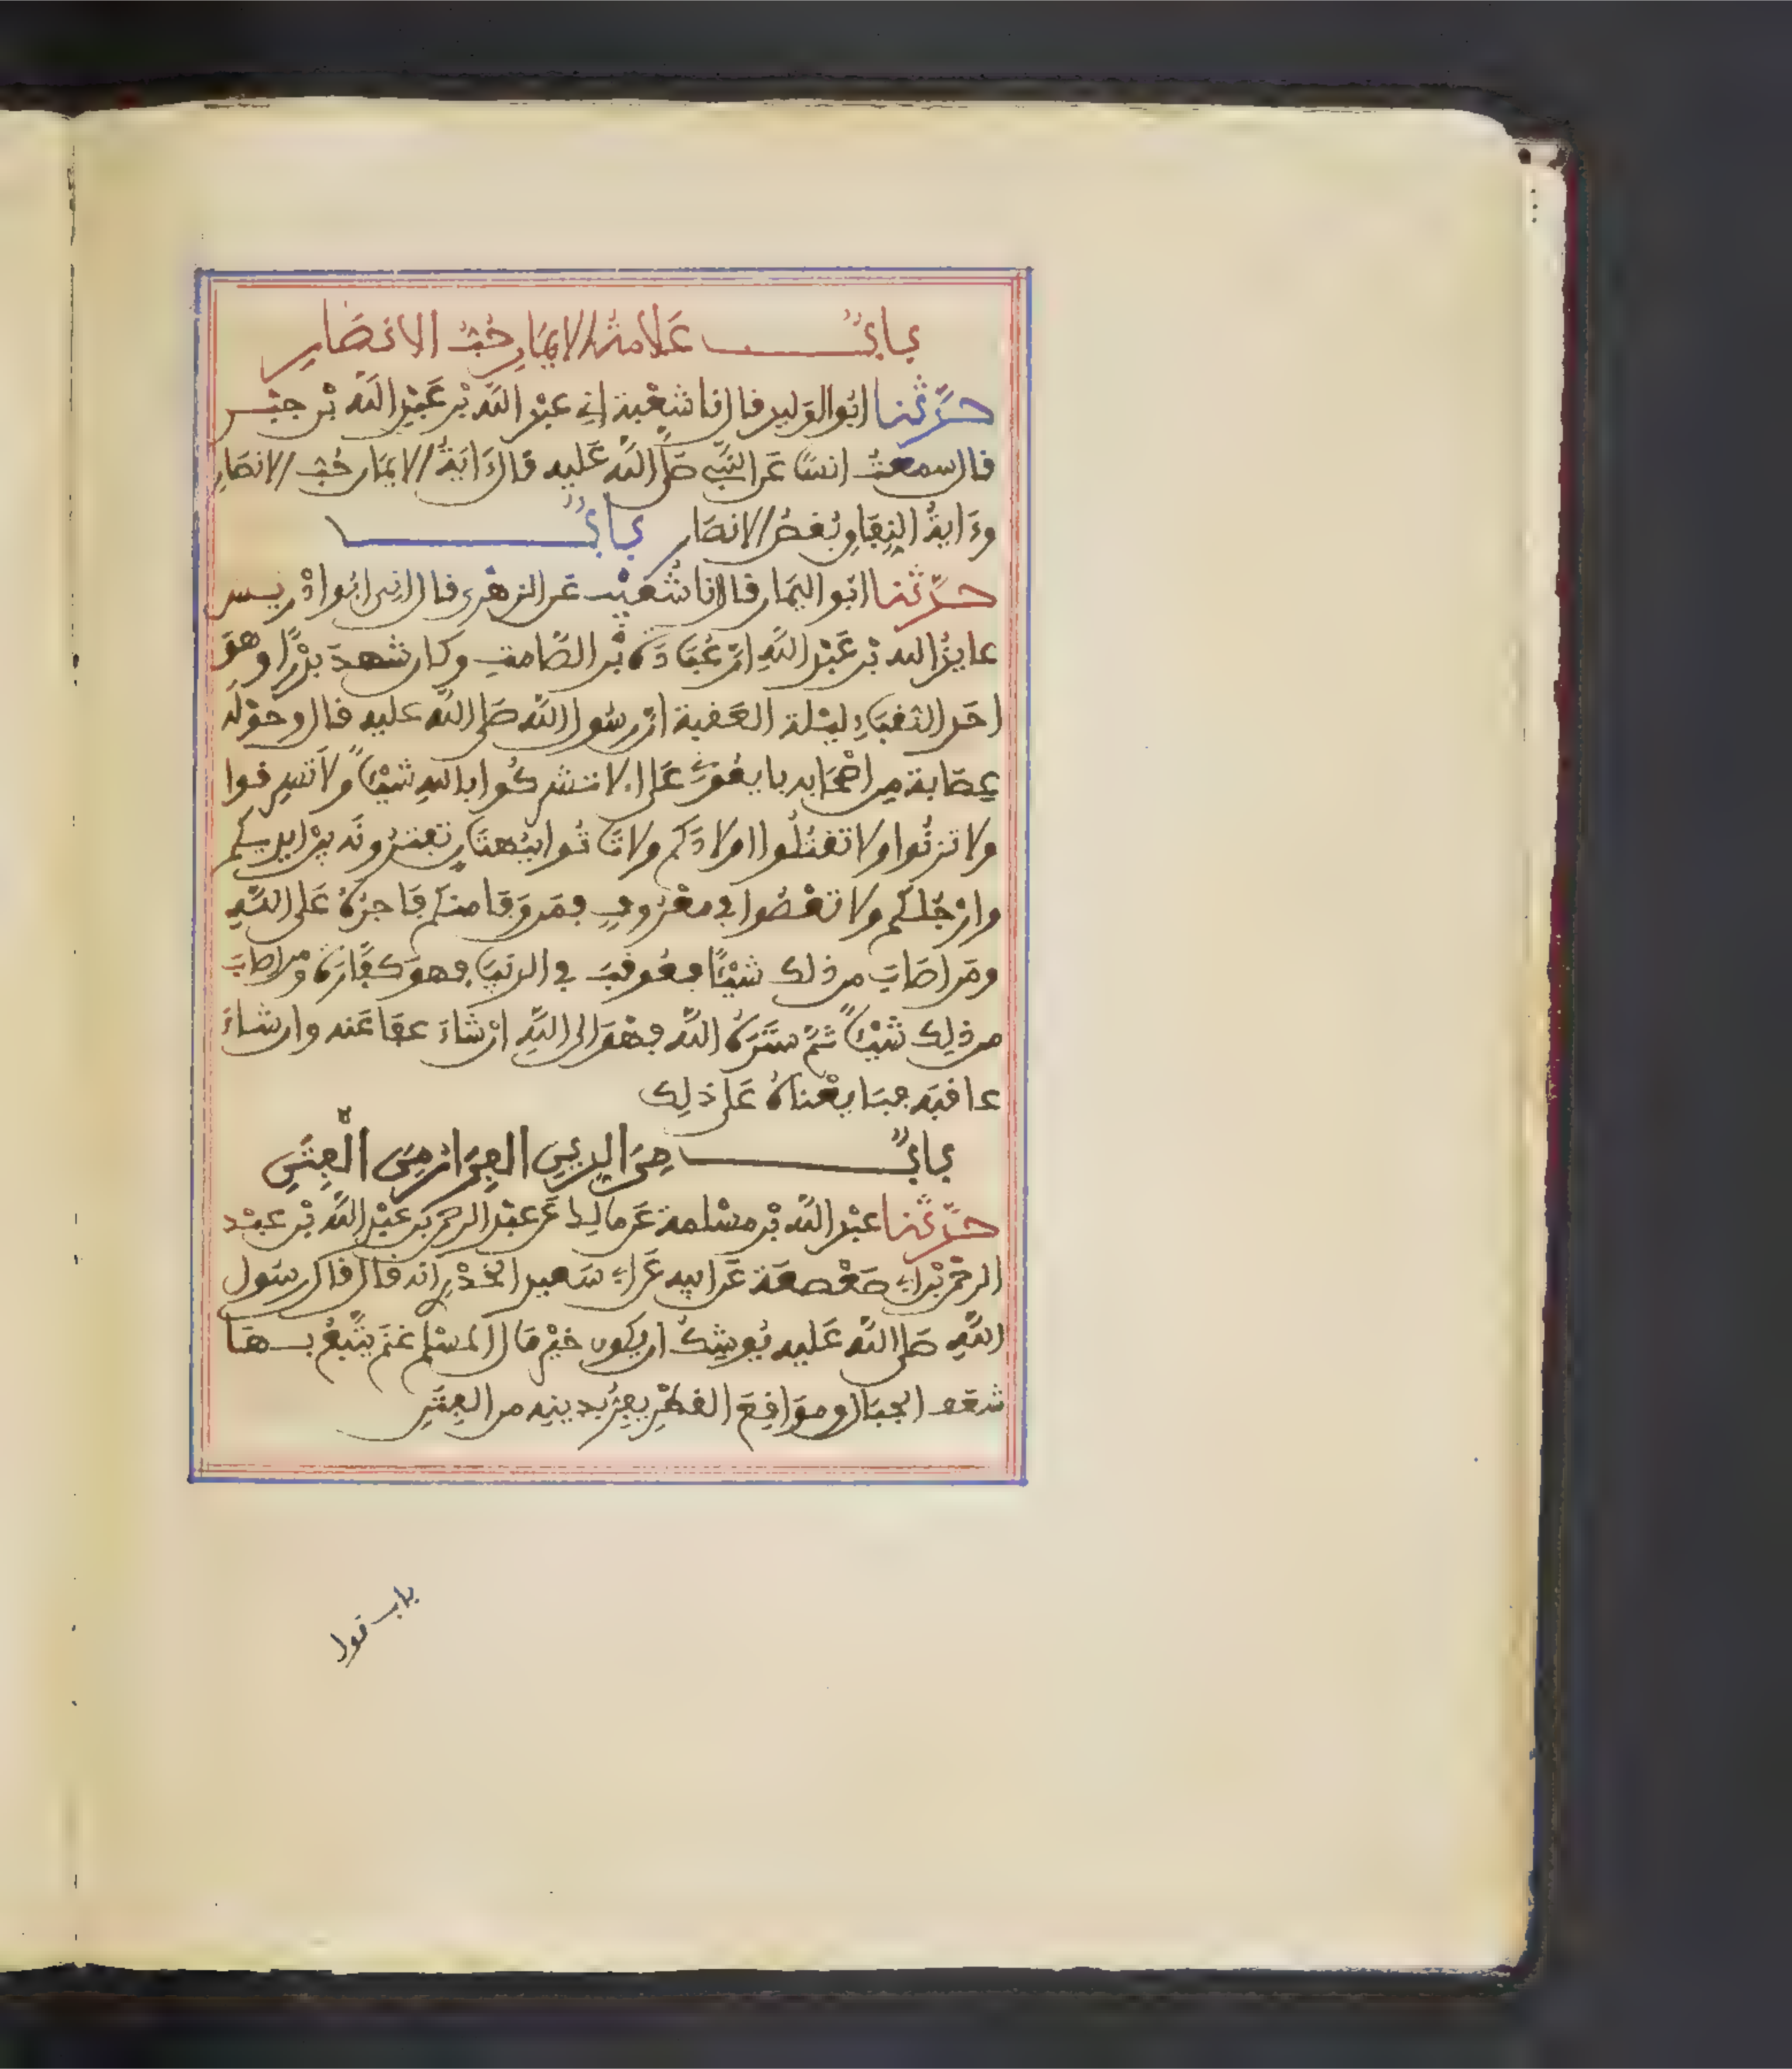 باب علامة الايمان حب الانصار
حدثنا ابوا الوليد قال انا شعبة اني عبد الله بن عبد الله بن جبر
قال سمعت انسا عن النبي صلى الله عليه قال ءاية الايمان حب الانصار
وءاية النفاق بغض الانصار باب
حدثنا ابو اليمان قال انا شعيب عن الزهري قال اني ابوا ادريس
عايذ الله بن عبد الله ان عبادة بن الصامت وكان شهد بدرا وهو
احد النقباء ليلة العقبة ان رسول الله صلى الله عليه قال وحوله
عصابة من اصحابه بايعوني على ان لا تشركوا بالله شيئا ولا تسرقوا
ولا تزنوا ولا تقتلوا اولادكم ولا تاتوا ببهتان تفترونه بين ايديكم
وارجلكم ولا تعصوا في معروف فمن وفا منكم فاجره على الله
ومن اصاب من ذلك شيئا فعوقب في الدنيا فهو كفارة ومن اصاب
من ذلك شيئا ثم ستره الله فهو الى الله ان شاء عفا عنه وان شاء
عاقبه فبايعناه على ذلك
باب من الدين الفرار من الفتن
حدثنا عبد الله بن مسلمة عن مالك عن عبد الرحمن بن عبد الله بن عبد
الرحمن بن ابي صعصعة عن ابيه عن ابي سعيد الخدري انه قال قال رسول
الله صلى الله عليه يوشك ان يكون خير مال المسلم غنم يتبع بها
شعف الجبال ومواقع القطر يفر بدينه من الفتن
باب قول